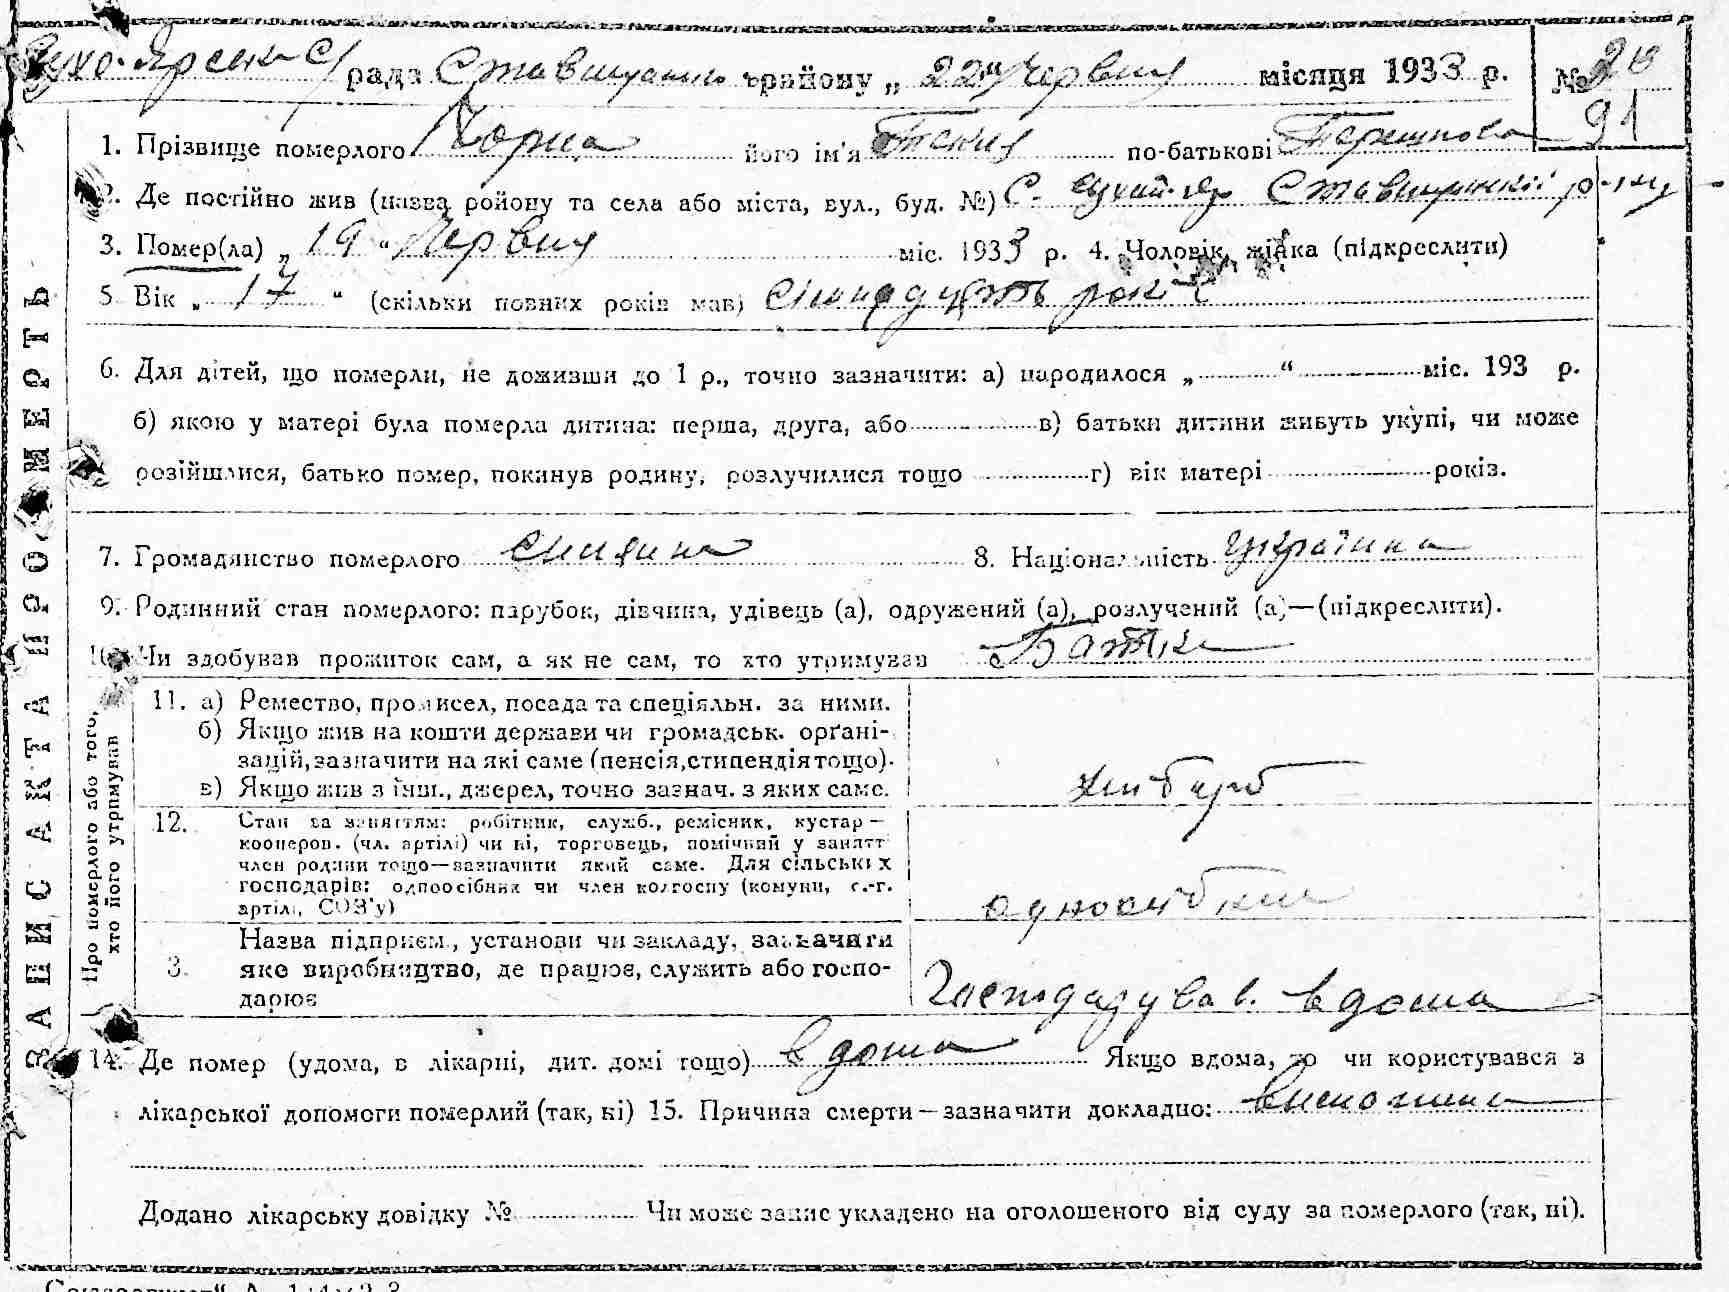 Сухо-Ярська с/рада Ставищанського району „22" червня місяця 1933 р. №
91
1. Прізвище померлого Чорна його ім'я по-батькові
2. Де постійно жив (назва району та села або міста, вул., буд. №) С. Сухий-Яр Ставищанської р-ну
3. Помер(ла) „19" червня міс. 1933 р. 4. Чоловік, жінка (підкреслити)
5 Вік „17" (скільки повних років мав) сімнадцять років
6. Для дітей, що померли, не доживши до 1 р., точно зазначити: а) народилося „ " міс. 193 р.
б) якою у матері була померла дитина: перша, друга, або в) батьки дитини живуть укупі, чи може
розійшлися, батько помер, покинув родину, розлучилися тощо г) вік матері років.
7. Громадянство померлого 8. Національність українка
9. Родинний стан померлого: парубок, дівчина, удівець (а), одружений (а), розлучений (а)—(підкреслити).
10. Чи здобував прожиток сам, а як не сам, то хто утримував Батьки
ЗАПИС АКТА ПРО СМЕРТЬ
Про померлого або того, хто його утримував
11. а) Ремество, промисел, посада та спеціяльн. за ними.
б) Якщо жив на кошти держави чи громадськ. орґані-
зацій, зазначити на які саме (пенсія, стипендія тощо).
в) Якщо жив з інш., джерел, точно зазнач. з яких саме. хлібороб
12. Стан за заняттям: робітник, служб., ремісник, кустар—
кооперов. (чл. артілі) чи ні, торговець, помічний у занятт
член родини тощо—зазначити який саме. Для сільських
господарів: одноосібник чи член колгоспу (комуни, с.-г.
артілі, СОЗ'у) одноосібник
3. Назва підприєм., установи чи закладу, зазначити
яке виробництво, де працює, служить або госпо-
дарює Господарував. вдома
14. Де помер (удома, в лікарні, дит. домі тощо) вдома Якщо вдома, то чи користувався з
лікарської допомоги померлий (так, ні) 15. Причина смерти—зазначити докладно:
Додано лікарську довідку № Чи може запис укладено на оголошеного від суду за померлого (так, ні).